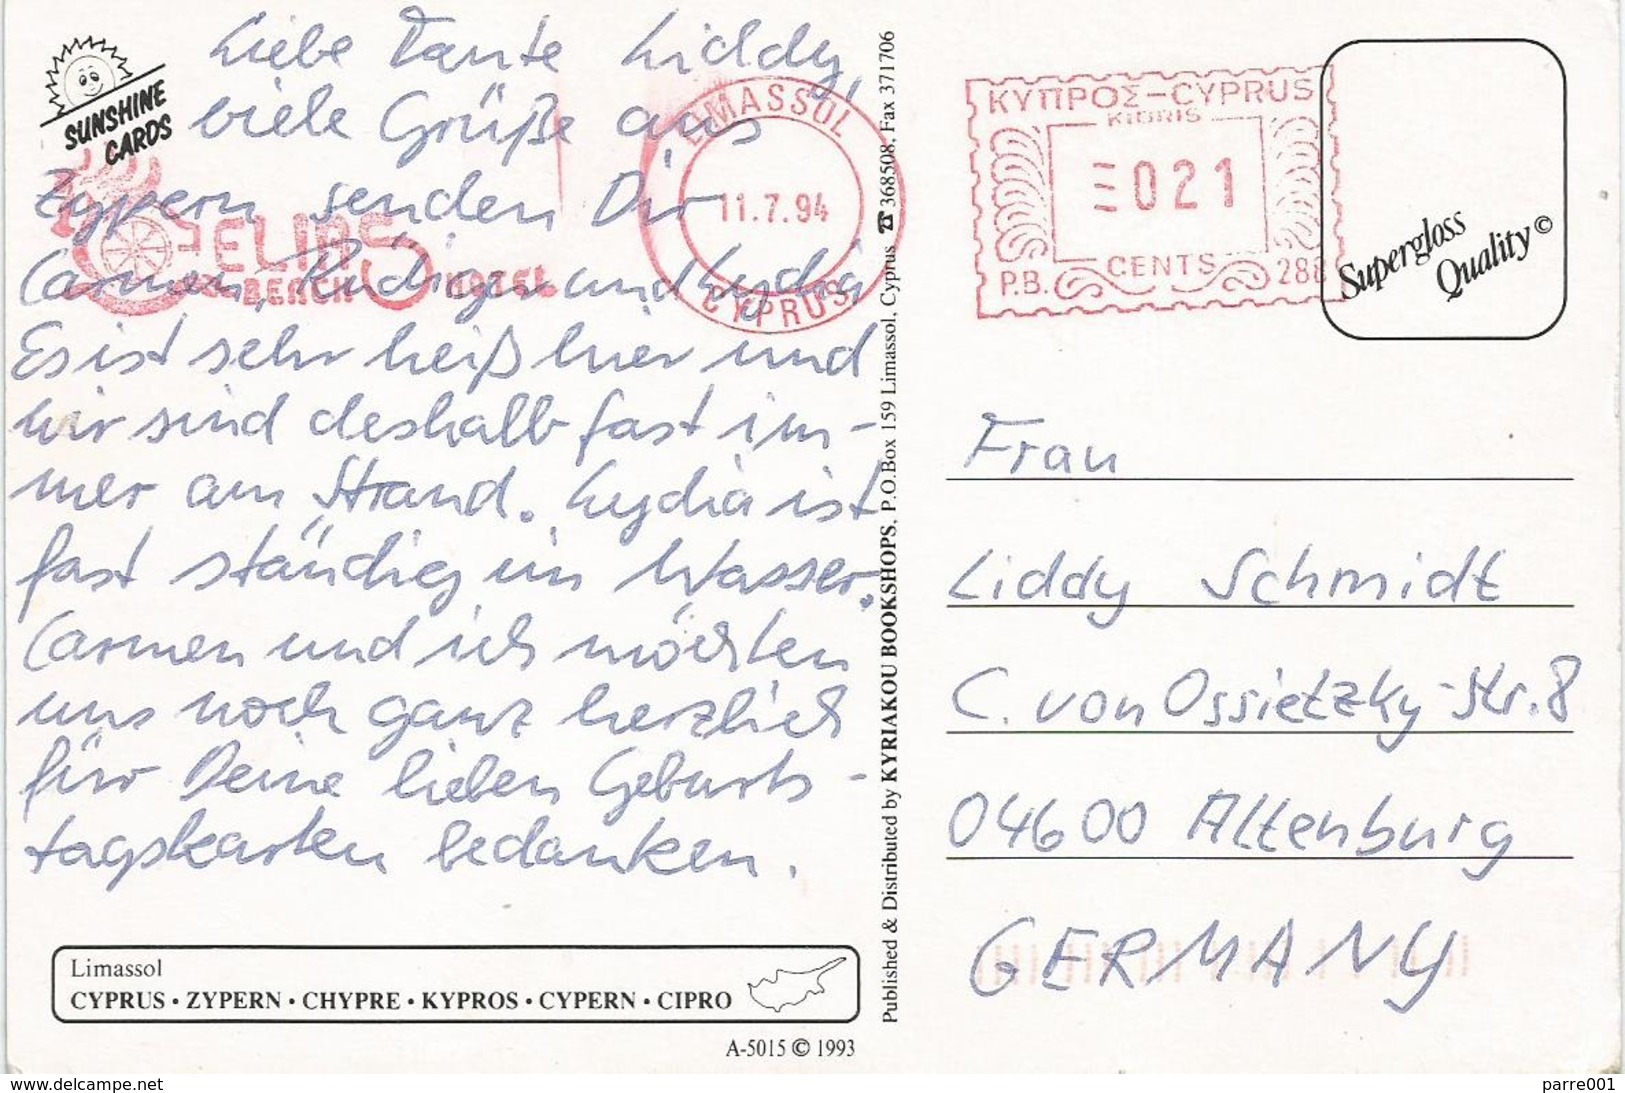 SUNSHINE
CARDS
Liebe Tante Liddy,
viele Grüße aus
Zypern senden Dir
Carmen, Rüdiger und Lydia
Es ist sehr heiß hier und
wir sind deshalb fast im-
mer am Strand. Lydia ist
fast ständig im Wasser.
Carmen und ich möchten
uns noch ganz herzlich
für Deine lieben Geburts-
tagskarten bedanken.
BEACH HOTEL
LIMASSOL
11.7.94
CYPRUS
Limassol
CYPRUS • ZYPERN • CHYPRE • KYPROS • CYPERN • CIPRO
A-5015 © 1993
Published & Distributed by KYRIAKOU BOOKSHOPS, P.O.Box 159 Limassol, Cyprus ☎ 368508, Fax 371706
ΚΥΠΡΟΣ-CYPRUS
KIBRIS
021
CENTS
P.B. 288
Supergloss
Quality ©
Frau
Liddy Schmidt
C. von Ossietzky-Str. 8
04600 Altenburg
GERMANY
www.delcampe.net
parre001